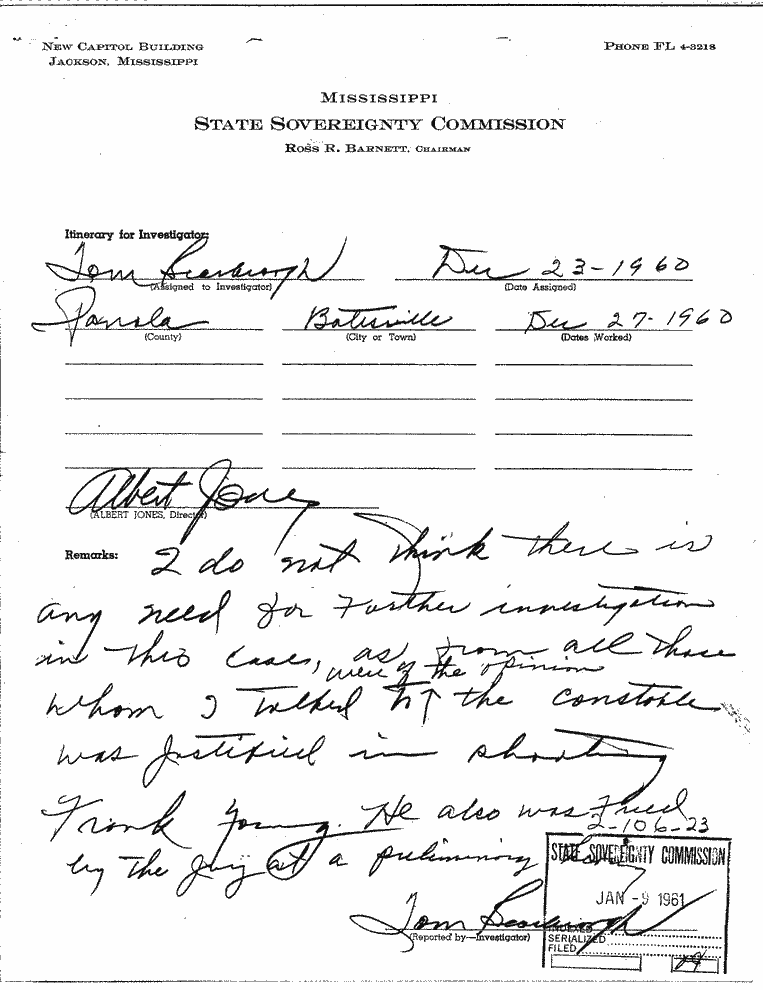 NEW CAPITOL BUILDING
JACKSON, MISSISSIPPI
PHONE FL 4-3218
MISSISSIPPI
STATE SOVEREIGNTY COMMISSION
ROSS R. BARNETT, CHAIRMAN
Itinerary for Investigator:
Tom Scarbrough Dec 23-1960
(Assigned to Investigator) (Date Assigned)
Panola Batesville Dec 27-1960
(County) (City or Town) (Dates Worked)
Albert Jones
(ALBERT JONES, Director)
Remarks: I do not think there is
any need for further investigation
in this case, as from all those
were of the opinion
whom I talked to the constable
was justified in shooting
Frank Young. He also was freed
2-106-23
by the jury at a preliminary
STATE SOVEREIGNTY COMMISSION
JAN -9 1961
Tom Scarbrough
(Reported by—Investigator)
INDEXED
SERIALIZED
FILED